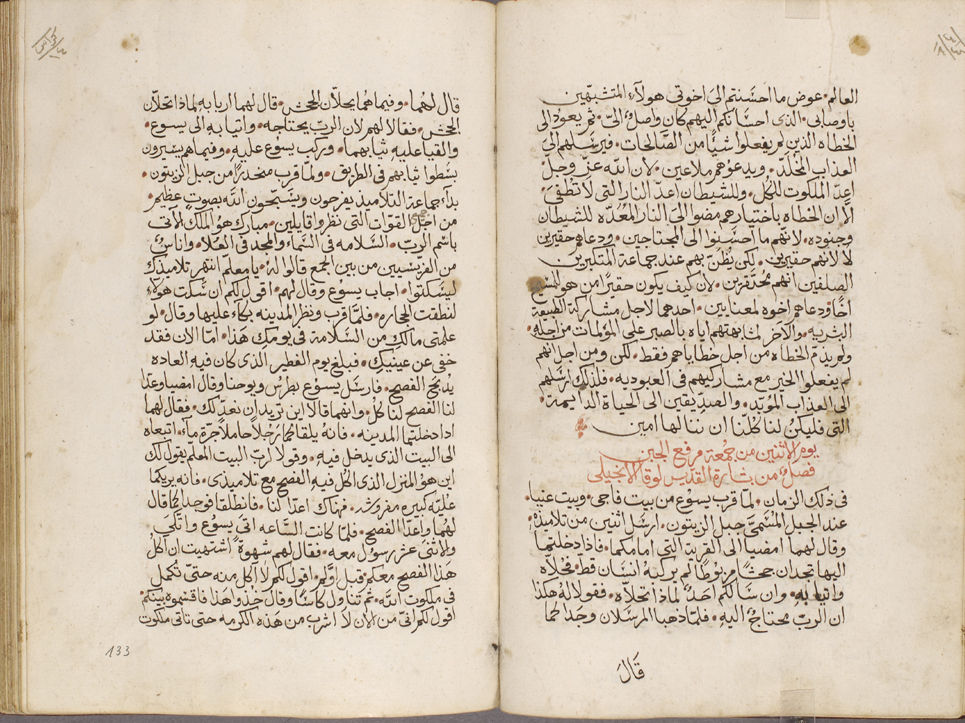 العالم ٠ عوض ما احسنتم الى اخوتي هولاء المتشبهين
باوصابى ٠ الذى احسانكم اليهم كان واصل الىّ ٠ ثم يعود الى
الخطاه الذين لم يفعلوا شيًا من الصَّالحات ٠ فيرسلهم الى
العذاب المخلّد ٠ ويدعوهم ملاعين ٠ لان الله عزّ وجلّ
اعدّ الملكوت للكل ٠ وللشيطان اعدّ النار التى لا تطفى ٠
الّا ان الخطاه باختيارهم مضوا الى النار المُعدّه للشيطان
وجنوده ٠ لانهم ما احسَنوا الى المحتاجين ٠ ودعاهم حقيرين
لا لانهم حقيرين ٠ لكن يُظنّ بهم عند جماعة المتكبّرين
الصلفين انهم محتقرين ٠ لان كيف يكون حقيرًا من هو للمسيح
اخًا ودعاهم اخوه لمعنايين ٠ احدهما لاجل مشاركة الطبيعة
البشريه ٠ والآخر لمشابهتهم اياه بالصبر على المولمات من اجله ٠
ولم يذمّ الخطاه من اجل خطاياهم فقط ٠ لكن ومن اجل انهم
لم يفعلوا الخير مع مشاركيهم فى العبوديه ٠ فلذلك ارسلهم
الى العذاب المؤبّد ٠ والصدّيقين الى الحياة الدايمة ٠
التى فليكنْ لنا كلّنا ان ننالها امين
يوم الاثنين من جمعة مرفع الجبن
فصلٌ من بشارة القديس لوقا الانجيلى
فى ذلك الزمان ٠ لما قرب يسوع من بيت فاجى ٠ وبيت عنيا ٠
عند الجبل المُسَمّى جبل الزيتون ٠ ارسَل اثنين من تلاميذه ٠
وقال لهما امضيا الى القرية التى امامكما ٠ فاذا دخلتما
اليها تجدان جحشًا مربوطًا لم يركبهُ انسَان قط ٠ فحُلّاه
واتيا بهِ ٠ وان سَالكم احدٌ لماذا تحلّاه ٠ فقولا له هكذا
ان الربّ محتاجٌ اليه ٠ فلمّا ذهبا المرسَلان وجَدا كما
قَالَ
قال لهُما ٠ وفيما هُما يحلّان الجحش ٠ قال لهما اربابه لماذا تحلّان
الجحش ٠ فقالا لهم لان الربّ يحتاجه ٠ واتيا به الى يسوع ٠
والقيا عليه ثيابهما ٠ وركب يسوع عليه ٠ وفيما هم يسيرون
بسطوا ثيابهم فى الطريق ٠ ولمّا قرب منحدرًا من جبل الزيتون ٠
بدأ جماعة التلاميذ يفرحون ويسَبّحون الله بصوت عظيم ٠
من اجْل القوّات التى نظروا قايلين ٠ مبارك هوُ الملك الآتى
باسم الربّ ٠ السَّلامه فى السَّماء والمجد فى العُلا ٠ واناسٌ
من الفرّيسيين من بين الجمع قالوا لهُ ٠ يا معلم انتهر تلاميذك
ليسَكتوا ٠ اجاب يسوع وقال لهم ٠ اقول لكم ان سَكت هولاء
لنطقت الحجاره ٠ فلمّا قرب ونظر المدينه بكا عليها وقال ٠ لو
علمتى ما لك من السَّلامة فى يومك هَذا ٠ امّا الان فقد
خفى عن عينيك ٠ فبلغ يوم الفطير الذى كان فيه العاده
يُدبحُ الفصح ٠ فارسَل يسوع بطرُس ويوحنا وقال امضيا وعدا
لنا الفصح لناكل ٠ وانهما قالا اين تريد ان نعدّ لك ٠ فقال لهما
اذا دخلتما المدينه ٠ فانهُ يلقاكما رَجُلاً حاملاً جرّة ماء ٠ اتبعاه
الى البيت الذى يدخل فيهِ ٠ وقولا لربّ البيت المعلم يقول لك
اين هوُ المنزل الذى اكل فيهِ الفصح مع تلاميذى ٠ فانه يريكما
عليّه كبيره مفروشه ٠ فهناك اعدّا لنا ٠ فانطلقا فوجدا كما قال
لهُما واعدّا الفصح ٠ فلمّا كانت السَّاعه اتى يسوع واتّكى ٠
والاثنى عشر رسوُل معه ٠ فقال لهم شهوةً اشتهيت ان اكل
هَذا الفصح معكم قبل اولم ٠ اقول لكم لا اكل منه حتىّ تكمل
فى ملكوت الله ٠ ثم تناول كاسًا وقال خُذوا هَذا فاقسَموه بينكم ٠
اقول لكم انى من الان لا اشرب من هذه الكرمه حتى تاتى ملكوت
133